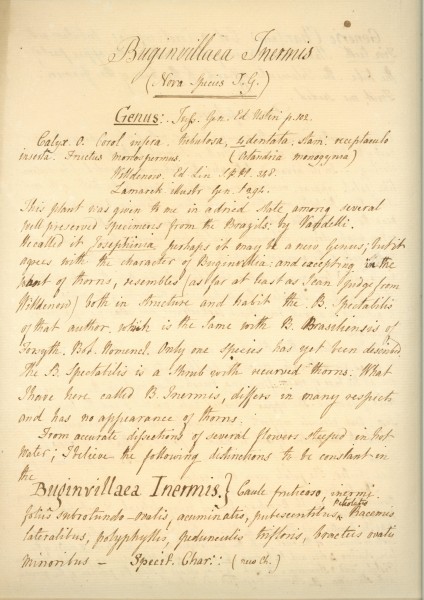 Buginvillaea Inermis
(Nova Species J.G.)
Genus: Juss. Gen. Ed Usteri p. 102.
Calyx. O. Corol infera, tubulosa, 4 dentata, Stam: receptaculo
inserta. Fructus monospermus. (Octandria monogynia)
Willdenow. Ed Lin 348.
Lamarck illustr Gen. 294.
This plant was given to me in a dried State among several
well preserved Specimens from the Brazils: by Vandelli.
He called it Josephinia; perhaps it may be a new Genus; but it
agrees with the character of Buginvillia: and excepting in the
want of thorns, resembles (as far at least as I can judge from
Willdenow) both in structure and habit the B. Spectabilis
of that author, which is the same with B. Brasiliensis of
Forsyth. Bot. Nomencl. Only one species has yet been described
The B. Spectabilis is a Shrub with recurved thorns. What
I have here called B. Inermis, differs in many respects
and has no appearance of thorns.
From accurate dissections of several flowers steeped in hot
water; I believe the following distinctions to be constant in
the
Buginvillaea Inermis.} Caule fruticoso, inermi
foliis subrotundo-ovatis, acuminatis, petiolatis pubescentibus, Racemis
lateralibus, polyphyllis, pedunculis trifloris, bracteis ovatis
minoribus - Specif. Char:: (